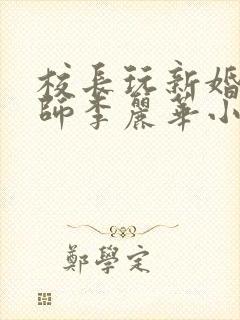 校長玩新婚
師李麗華小
鄭學定